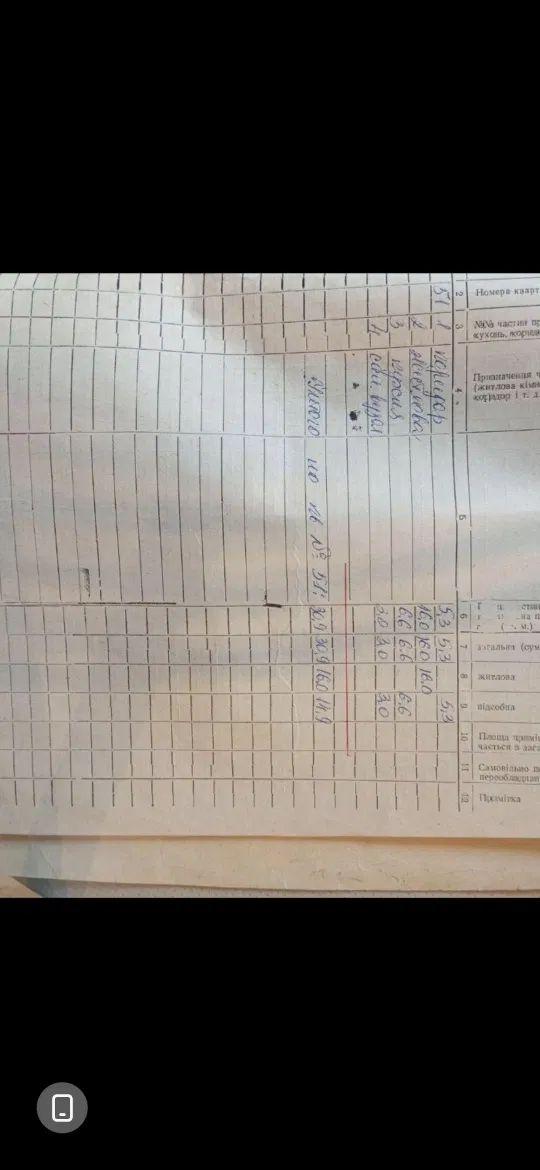 Номера кварт
№№ частин пр
кухонь, корид
Призначення ч
(житлова кімн
коридор і т. д.
загальна (сум
житлова
підсобна
Площа приміщ
чається в зага
Самовільно п
переобладнан
Примітка
2 3 4 5 6 7 8 9 10 11 12
51 1 коридор 5,3 5,3 5,3
2 житлова 16,0 16,0 16,0
3 кухня 6,6 6,6 6,6
4 сан. вузол 3,0 3,0 3,0
Усього по кв № 51: 30,9 30,9 16,0 14,9